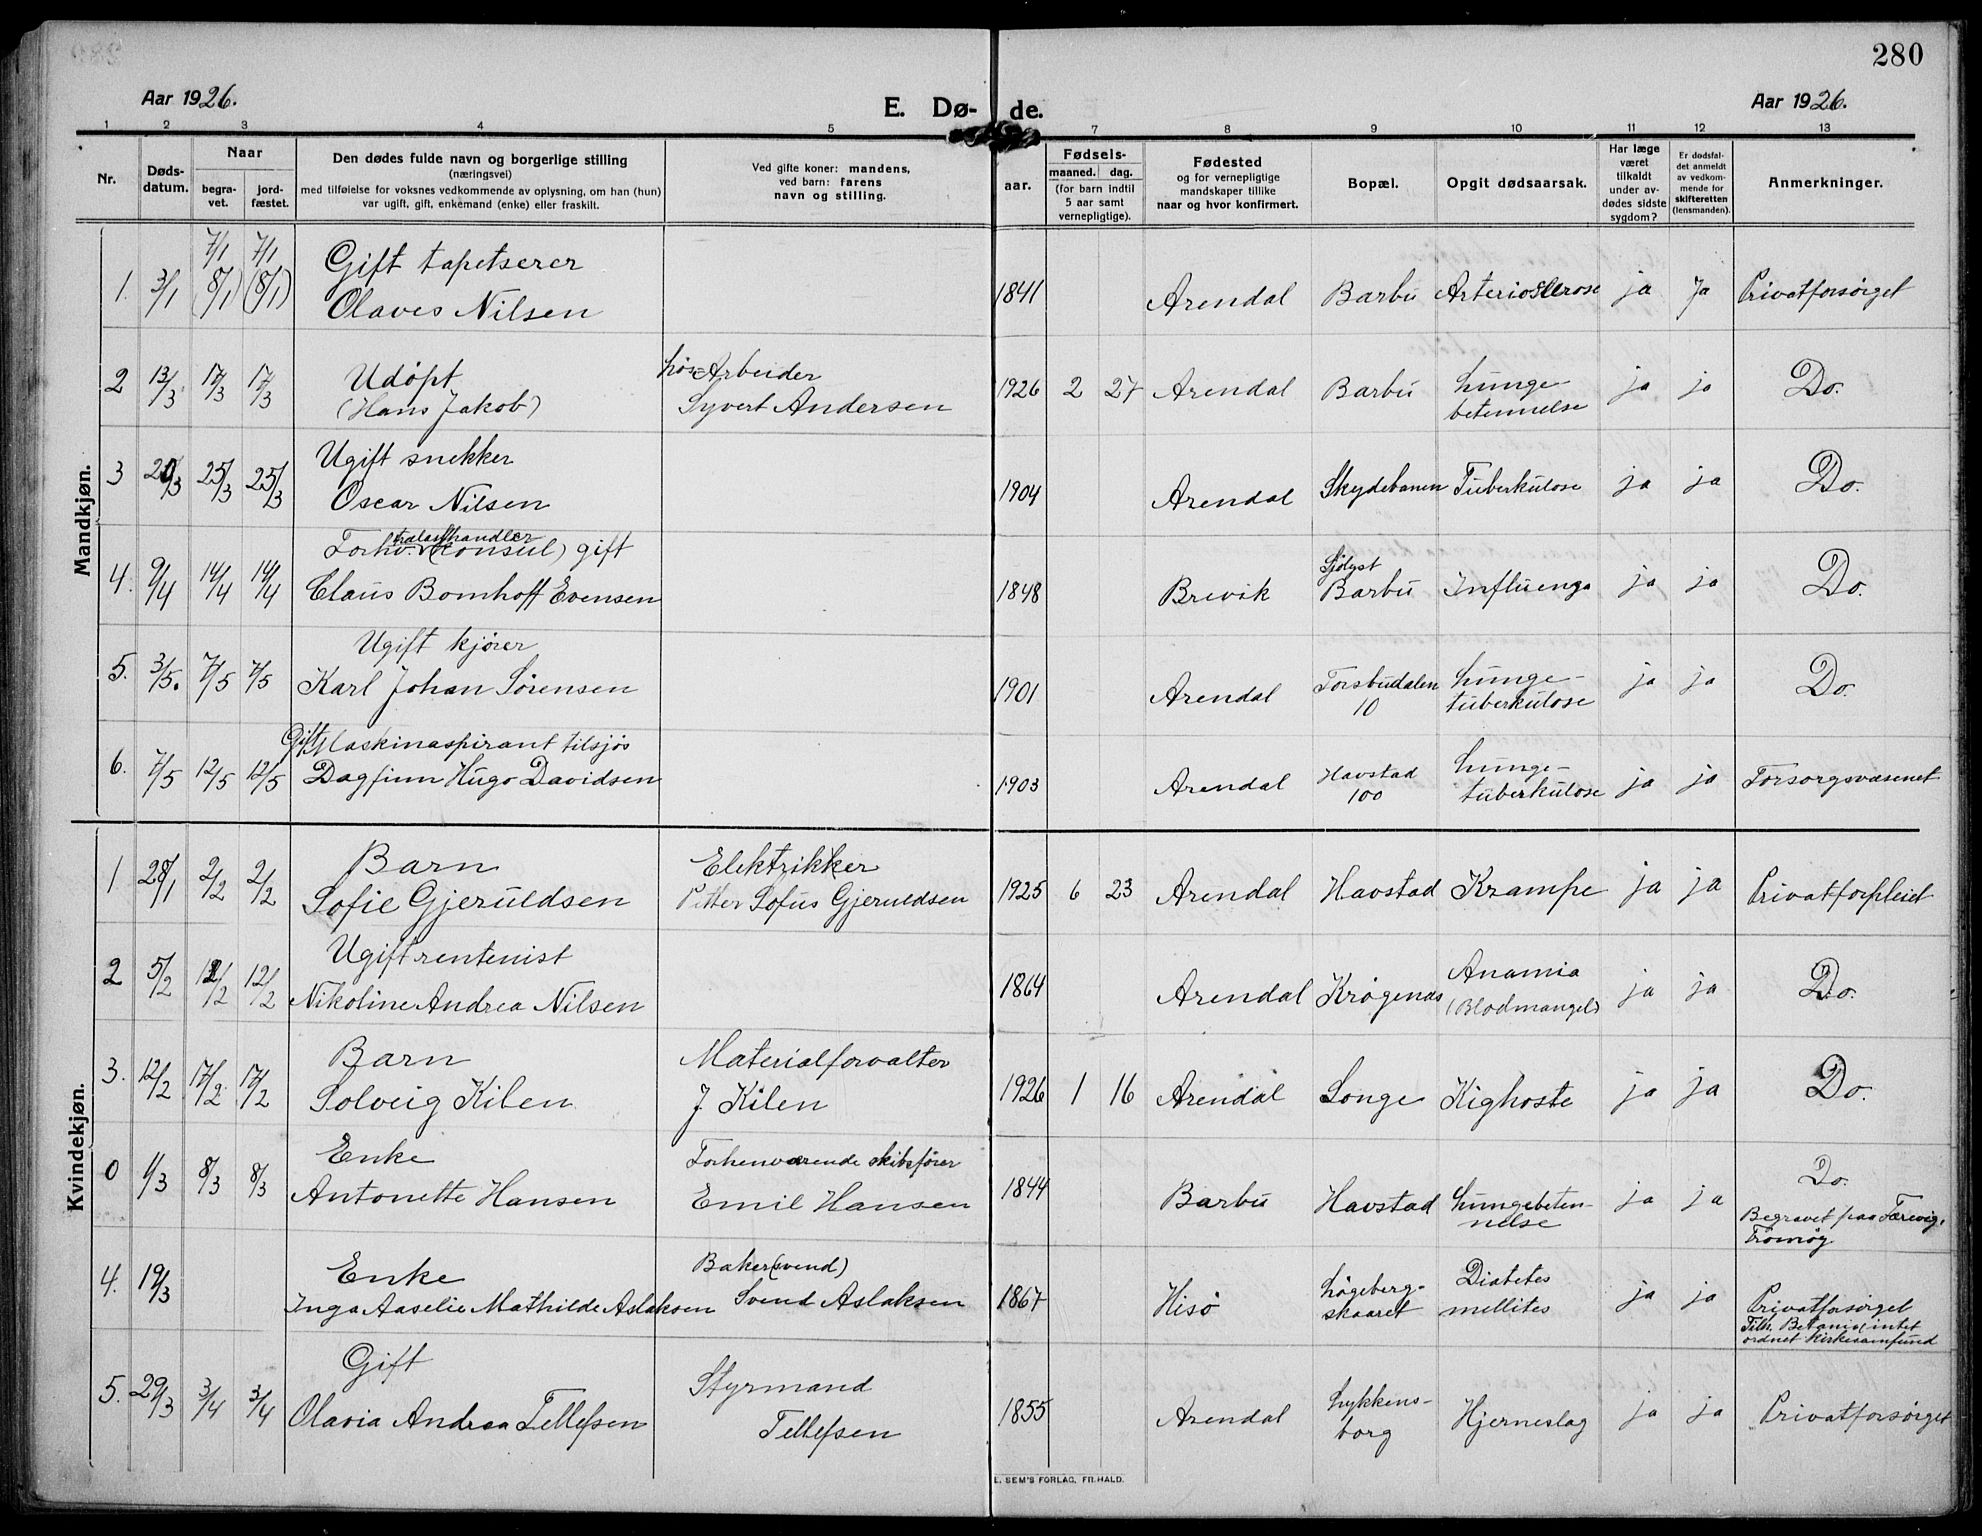 280
Aar 1926.
E. Dø- de.
Aar 1926.
1 2 3 4 5 7 8 9 10 11 12 13
Nr.
Døds-
datum.
Naar
begra-
vet.
jord-
fæstet.
Den dødes fulde navn og borgerlige stilling
(næringsvei)
med tilføielse for voksnes vedkommende av oplysning, om han (hun)
var ugift, gift, enkemand (enke) eller fraskilt.
Ved gifte koner: mandens,
ved barn: farens
navn og stilling.
aar.
Fødsels-
maaned. dag.
(for barn indtil
5 aar samt
vernepligtige).
Fødested
og for vernepligtige
mandskaper tillike
naar og hvor konfirmert.
Bopæl.
Opgit dødsaarsak.
Har læge
været
tilkaldt
under av-
dødes sidste
sygdom?
Er dødsfal-
det anmeldt
av vedkom-
mende for
skifteretten
(lensmanden).
Anmerkninger.
Mandkjøn.
1. 3/1 7/1 (8/1) 7/1 (8/1)
Gift tapetserer
Olaves Nilsen
1841 Arendal Barbu Arteriosclerose ja Ja Privatforsørget
2 13/3 17/3 17/3
Udøpt
(Hans Jakob)
Arbeider
Syvert Andersen
1926 2 27 Arendal Barbu Lunge-
betennelse
ja ja Do.
3 20/3 25/3 25/3
Ugift snekker
Oscar Nilsen
1904 Arendal Skydebanen Tuberkulose ja ja Do.
4. 9/4 14/4 14/4
trælasthandler
Forhv. (Konsul) gift
Claus Bomhoff Evensen
1848 Brevik Sjølyst
Barbu Influenga ja ja Do.
5. 3/5. 7/5 7/5
Ugift kjører
Karl Johan Sørensen
1901 Arendal Torsbudalen
10
Lunge-
tuberkulose
ja ja Do.
6. 7/5 12/5 12/5
Gift Maskinaspirant tilsjøs
Dagfinn Hugo Davidsen
1903 Arendal Havstad
100
Lunge-
tuberkulose
ja ja Forsorgsvæsenet
Kvindekjøn.
1 28/1 2/2 2/2
Barn
Sofie Gjeruldsen
Elektrikker
Petter Sofus Gjeruldsen
1925 6 23 Arendal Havstad Krampe ja ja Privatforpleiet
2 5/2 12/2 12/2
Ugift rentenist
Nikoline Andrea Nilsen
1864 Arendal Krøgenæs Anamia
(Blodmangel)
ja ja Do.
3. 12/2 17/2. 17/2
Barn
Solveig Kilen
Materialforvalter
J. Kilen
1926 1 16 Arendal Longe Kighoste ja ja Do.
0 1/3 8/3 8/3
Enke
Antonette Hansen
Forhenværende skibsfører
Emil Hansen
1844 Barbu Havstad Lungebeten-
nelse
ja ja Do.
Begravet paa Færevig,
Tromøy
4. 19/3
Enke
Inga Aaselie Mathilde Aslaksen
Baker(svend)
Svend Aslaksen
1867 Hisø Løgeberg-
skaaret
Diabetes
mellites
ja ja Privatforsørget
Tilh. Betania, intet
ordnet kirkesamfund
5. 29/3 3/4 3/4
Gift
Olavia Andrea Tellefsen
Styrmand
Tellefsen
1855 Arendal Lykkens-
borg
Hjerneslag ja ja Privatforsørget
E. SEM'S FORLAG, FR.HALD.